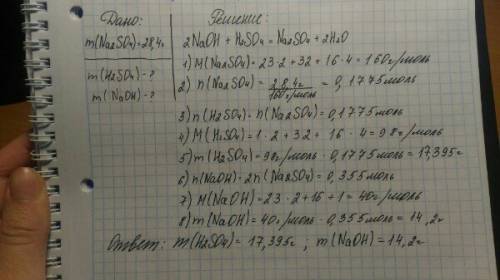 Дано:
m(Na2SO4)=28,4г
m(H2SO4)-?
m(NaOH)-?
Решение:
2NaOH + H2SO4 = Na2SO4 + 2H2O
1) M(Na2SO4)=23·2+32+16·4=160г/моль
2) n(Na2SO4)=28,4г/160г/моль=0,1775моль
3) n(H2SO4)=n(Na2SO4)=0,1775моль
4) M(H2SO4)=1·2+32+16·4=98г/моль
5) m(H2SO4)=98г/моль·0,1775моль=17,395г
6) n(NaOH)=2n(Na2SO4)=0,355моль
7) M(NaOH)=23·2+16+1=40г/моль
8) m(NaOH)=40г/моль·0,355моль=14,2г
Ответ: m(H2SO4)=17,395г; m(NaOH)=14,2г